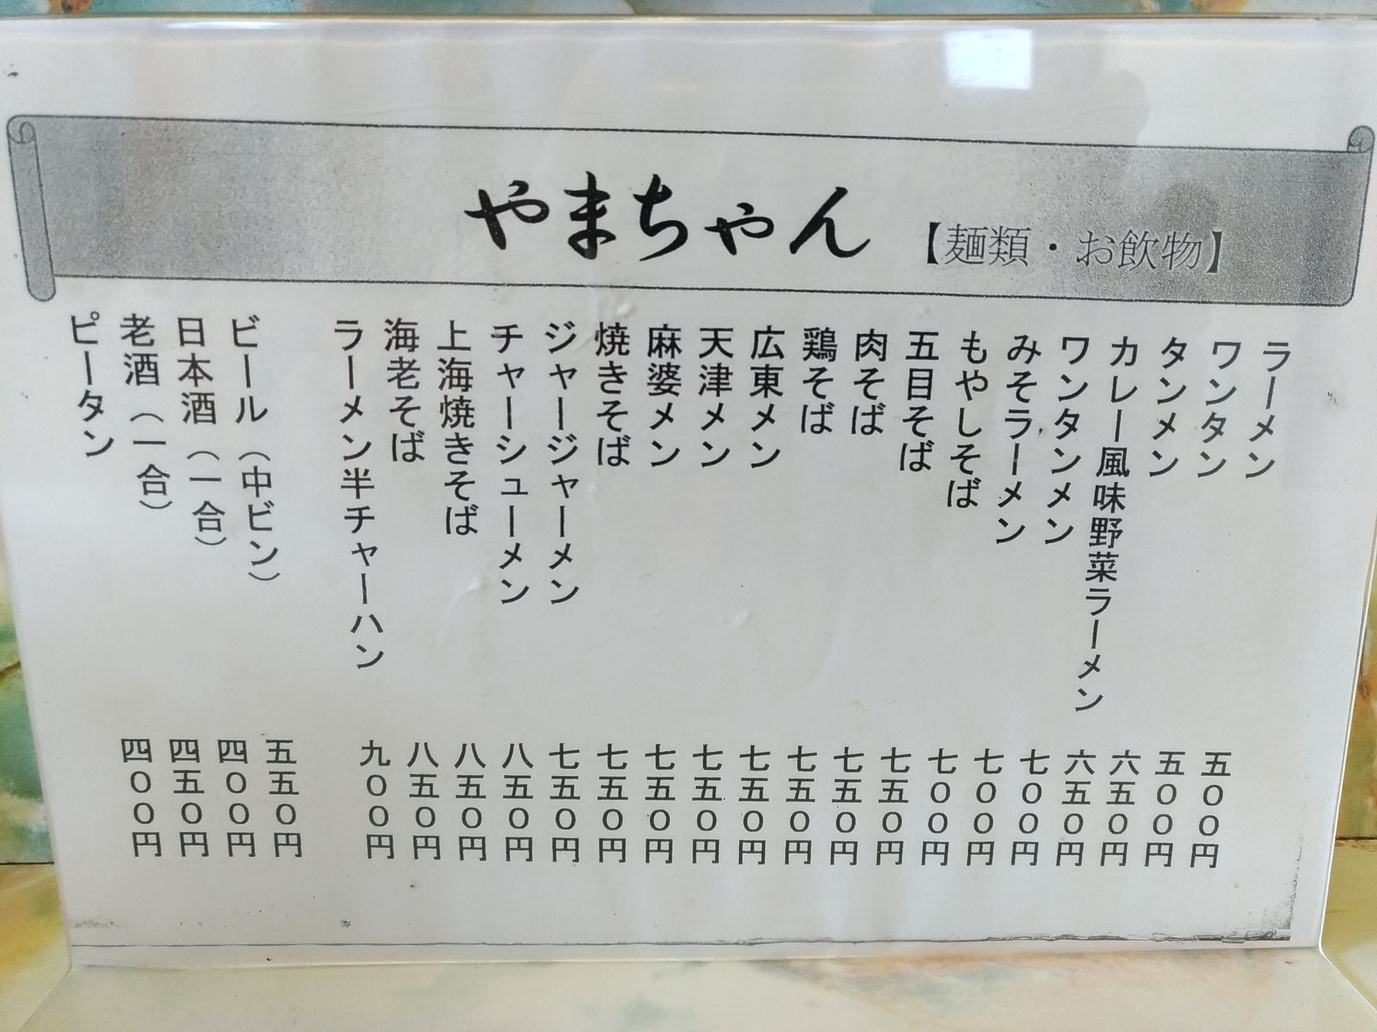 やまちゃん 【麺類・お飲物】
ラーメン 五〇〇円
ワンタン 五〇〇円
タンメン 六五〇円
カレー風味野菜ラーメン 六五〇円
ワンタンメン 七〇〇円
みそラーメン 七〇〇円
もやしそば 七〇〇円
五目そば 七五〇円
肉そば 七五〇円
鶏そば 七五〇円
広東メン 七五〇円
天津メン 七五〇円
麻婆メン 七五〇円
焼きそば 七五〇円
ジャージャーメン 七五〇円
チャーシューメン 八五〇円
上海焼きそば 八五〇円
海老そば 八五〇円
ラーメン半チャーハン 九〇〇円
ビール（中ビン） 五五〇円
日本酒（一合） 四〇〇円
老酒（一合） 四五〇円
ピータン 四〇〇円